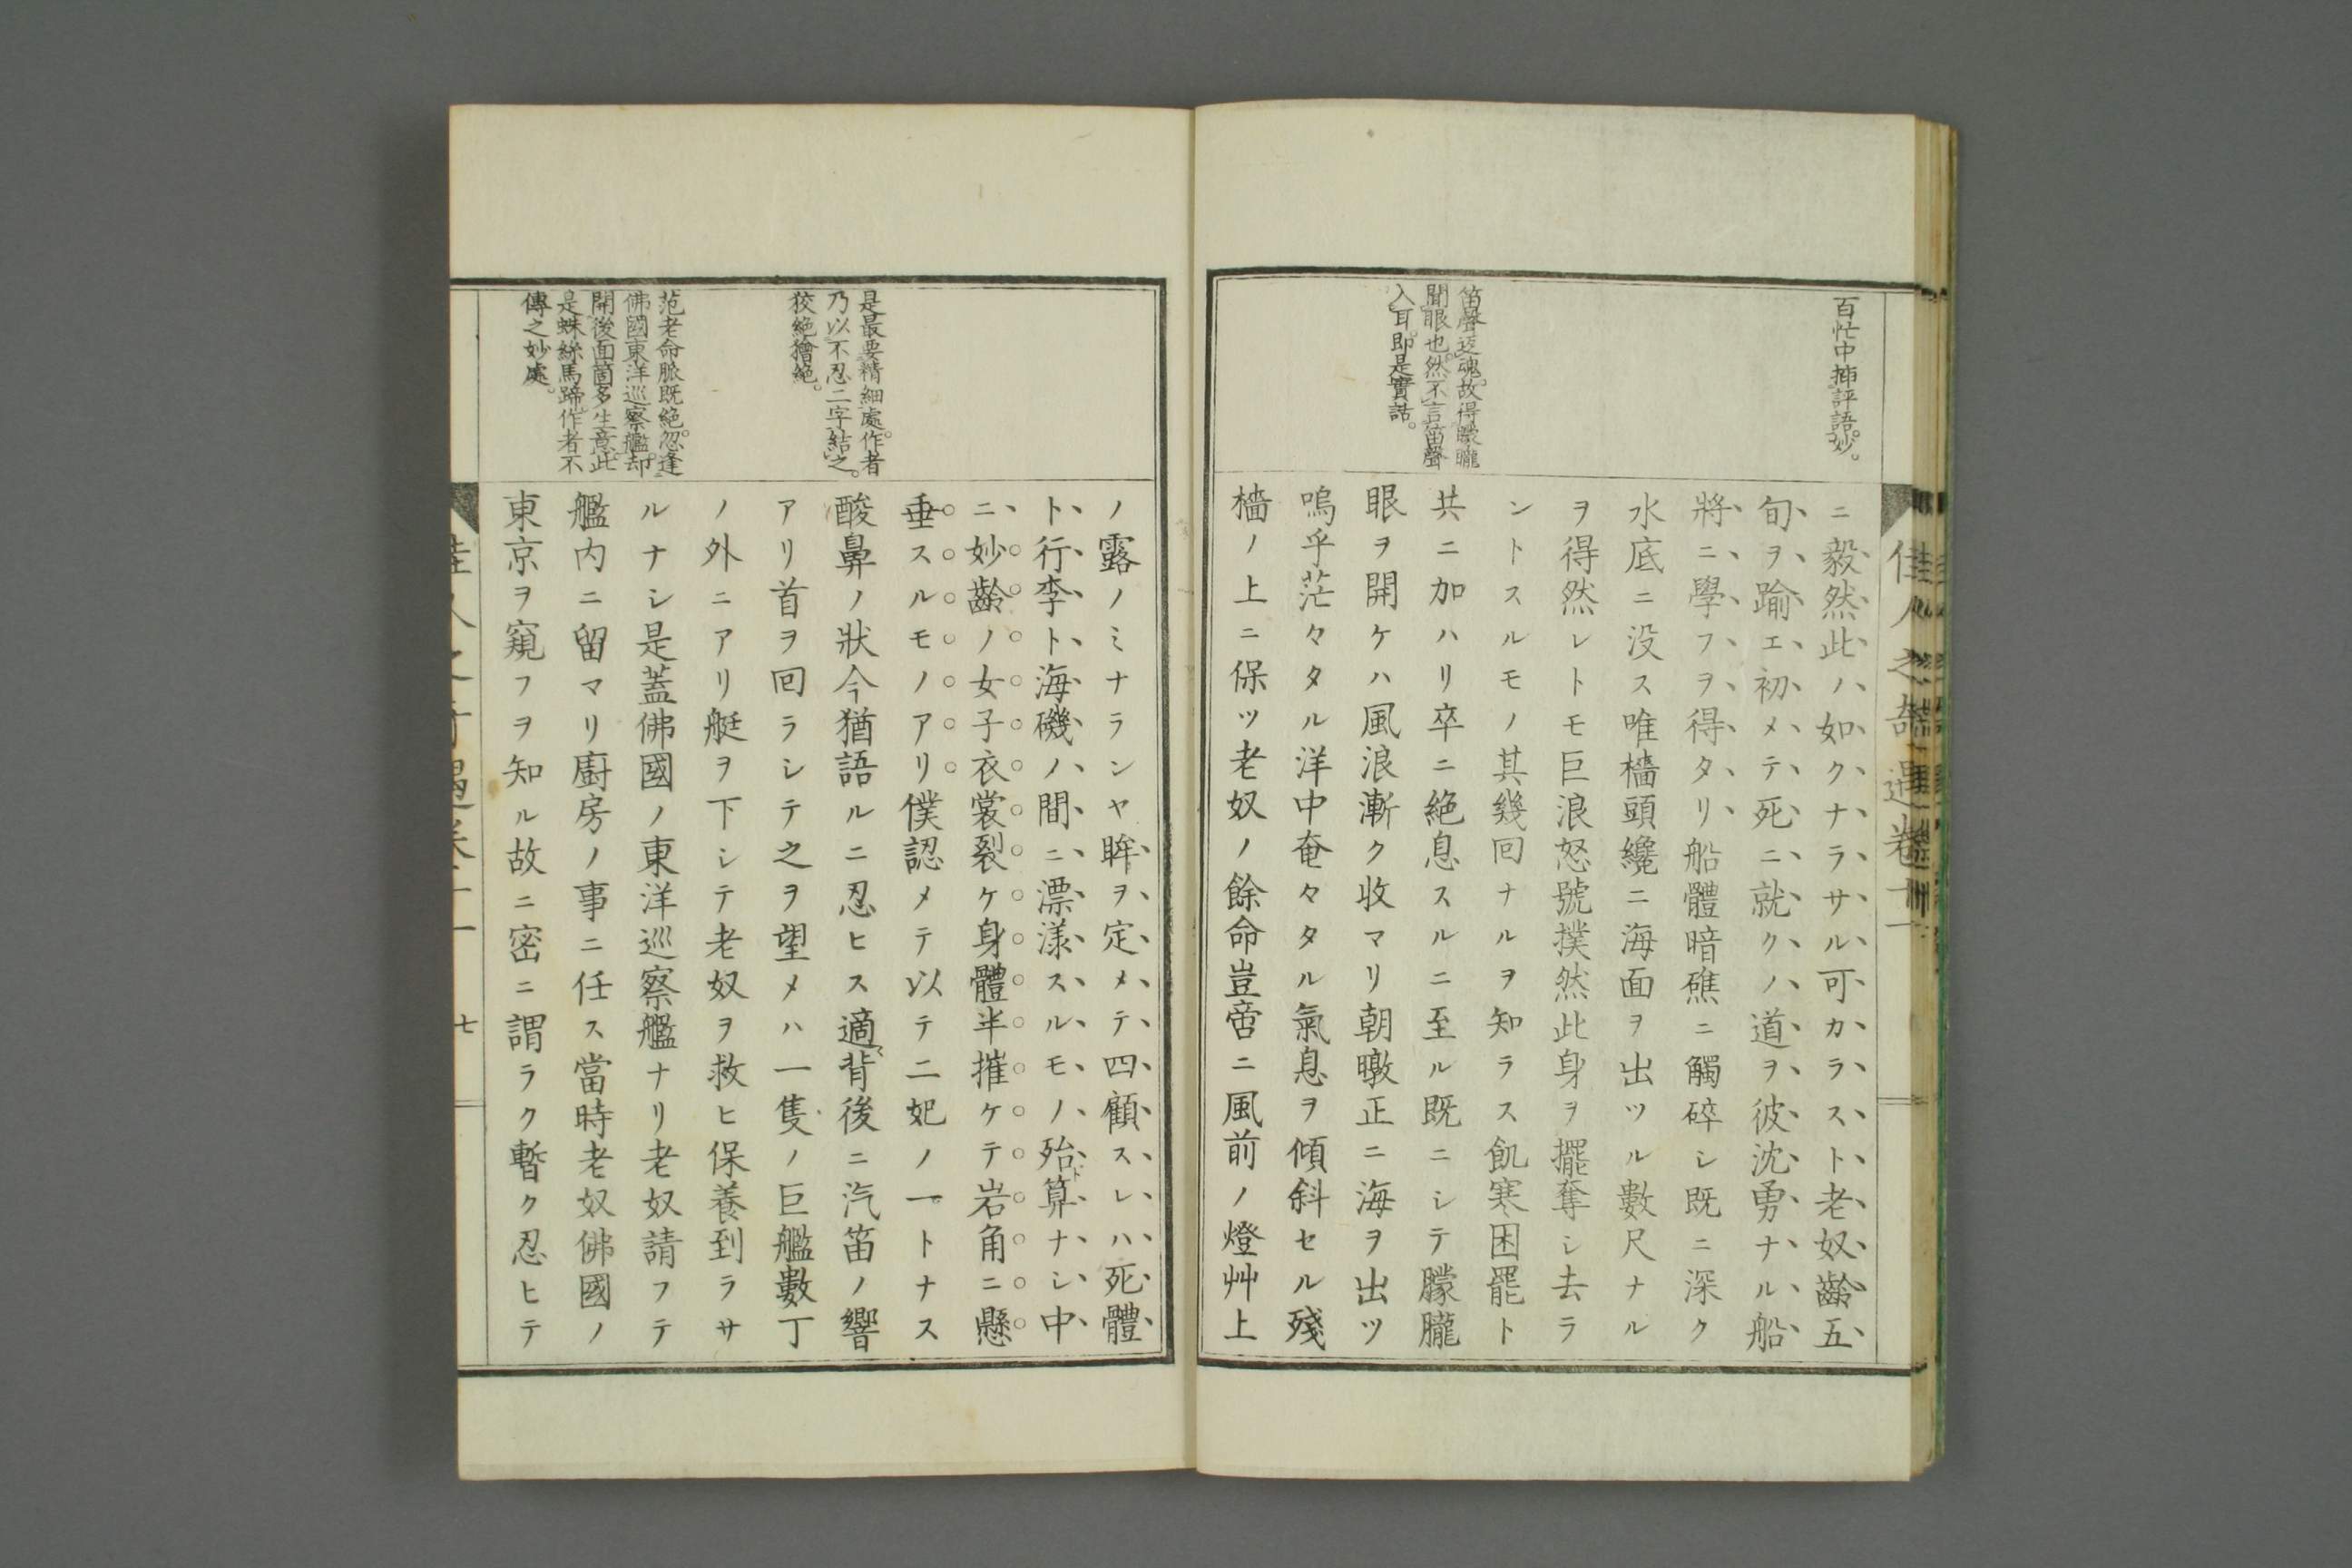 佳人之奇遇卷十一
百忙中挿評語妙。
ニ毅然此ノ如クナラサル可カラスト老奴齡五
旬ヲ踰エ初メテ死ニ就クノ道ヲ彼沈勇ナル船
將ニ學フヲ得タリ船體暗礁ニ觸碎シ既ニ深ク
水底ニ没ス唯檣頭纔ニ海面ヲ出ツル數尺ナル
ヲ得然レトモ巨浪怒號撲然此身ヲ擺奪シ去ラ
ントスルモノ其幾回ナルヲ知ラス飢寒困罷ト
笛聲返魂。故得朦朧
聞眼也。然不言笛聲
入耳。即是實話。
共ニ加ハリ卒ニ絶息スルニ至ル既ニシテ朦朧
眼ヲ開ケハ風浪漸ク收マリ朝暾正ニ海ヲ出ツ
嗚乎茫々タル洋中奄々タル氣息ヲ傾斜セル殘
檣ノ上ニ保ツ老奴ノ餘命豈啻ニ風前ノ燈艸上
ノ露ノミナランヤ眸ヲ定メテ四顧スレハ死體
ト行李ト海磯ノ間ニ漂漾スルモノ殆ト算ナシ中
ニ妙齡ノ女子衣裳裂ケ身體半摧ケテ岩角ニ懸
是最要精細處。作者
乃以不忍二字結之。
狡絶獪絶。
垂スルモノアリ僕認メテ以テ二妃ノ一トナス
酸鼻ノ狀今猶語ルニ忍ヒス適〻背後ニ汽笛ノ響
アリ首ヲ回ラシテ之ヲ望メハ一隻ノ巨艦數丁
ノ外ニアリ艇ヲ下シテ老奴ヲ救ヒ保養到ラサ
范老命脈既絶。忽逢
佛國東洋巡察艦。却
開後面箇多生意。此
是蛛絲馬蹄。作者不
傳之妙處。
ルナシ是蓋佛國ノ東洋巡察艦ナリ老奴請フテ
艦内ニ留マリ廚房ノ事ニ任ス當時老奴佛國ノ
東京ヲ窺フヲ知ル故ニ密ニ謂ラク暫ク忍ヒテ
七